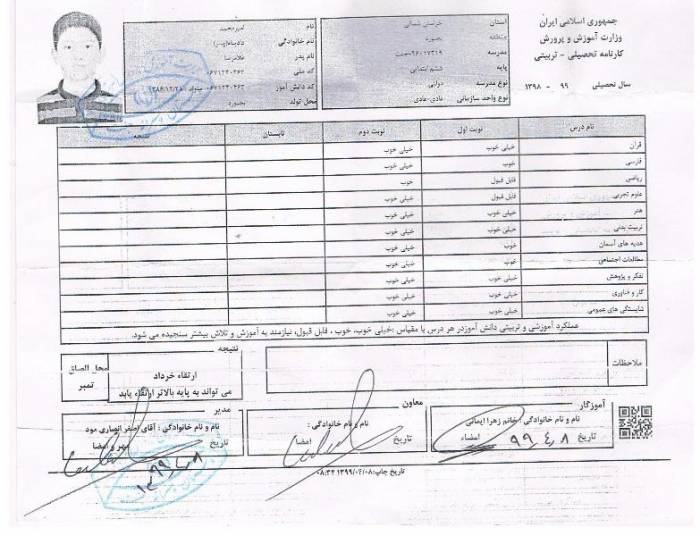 جمهوری اسلامی ایران
وزارت آموزش و پرورش
کارنامه تحصیلی - تربیتی
سال تحصیلی ۹۹ - ۱۳۹۸
استان خراسان شمالی
منطقه
مدرسه
پایه ششم ابتدایی
نوع مدرسه دولتی
نوع واحد سازمانی عادی-عادی
نام امیرمحمد
نام خانوادگی
نام پدر غلامرضا
کد ملی
کد دانش آموز
محل تولد
نام درس نوبت اول نوبت دوم تابستان نتیجه
قرآن خیلی خوب خیلی خوب
فارسی خوب خیلی خوب
ریاضی قابل قبول خوب
علوم تجربی قابل قبول خیلی خوب
هنر خیلی خوب خیلی خوب
تربیت بدنی خیلی خوب خیلی خوب
هدیه های آسمان خوب خیلی خوب
مطالعات اجتماعی خوب خیلی خوب
تفکر و پژوهش خیلی خوب خیلی خوب
کار و فناوری خیلی خوب خیلی خوب
شایستگی های عمومی خیلی خوب خیلی خوب
عملکرد آموزشی و تربیتی دانش آموزدر هر درس با مقیاس :خیلی خوب، خوب ، قابل قبول، نیازمند به آموزش و تلاش بیشتر سنجیده می شود.
ملاحظات
نتیجه
ارتقاء خرداد
می تواند به پایه بالاتر ارتقاء یابد
محل الصاق
تمبر
آموزگار
نام و نام خانوادگی : خانم زهرا ایمانی
تاریخ ۹۹/۴/۸ امضاء
معاون
نام و نام خانوادگی :
تاریخ امضا
مدیر
نام و نام خانوادگی : آقای اصغر انصاری مود
تاریخ مهر و امضا
تاریخ چاپ:۱۳۹۹/۰۴/۰۸ ۰۸:۳۴